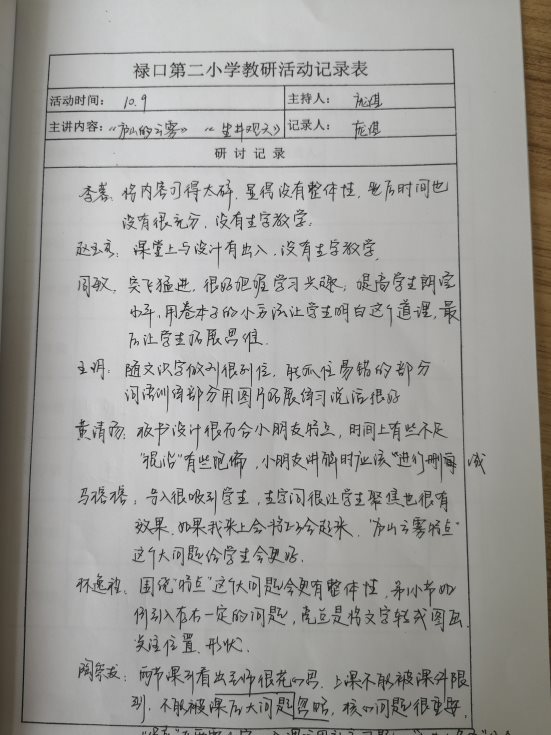 禄口第二小学教研活动记录表
活动时间： 10.9 主持人：
主讲内容：《庐山的云雾》 《坐井观天》 记录人：
研讨记录
将内容 得太碎，显得没有整体性， 后时间也
没有很充分，没有生字教学。
课堂上与设计有出入，没有生字教学，
周敏： 突飞猛进，很好把握学习兴趣，提高学生朗读
水平，用卷本子的小方法让学生明白这个道理，最
后让学生拓展思维．
王明： 随文识字做到很到位，能抓住易错的部分
词语训练部分用图片拓展练习说话很好
黄清 ：板书设计很符合小朋友特点，时间上有些不足
有些跑偏，小朋友讲解时应该“进行删减
马 ：导入很吸引学生，生字词很让学生聚焦也很有
效果．如果我来上会将2.3合起来，“庐山云雾特点”
这个大问题给学生会更好．
围绕“特点”这个大问题会更有整体性，第1小节如
例引入存在一定的问题， 是将文字转成图画，
关注位置、形状．
陶 ：两节课 看出老师很花心思．上课不能被课件限
到，不能被课后大问题忽略，核心问题很重要，